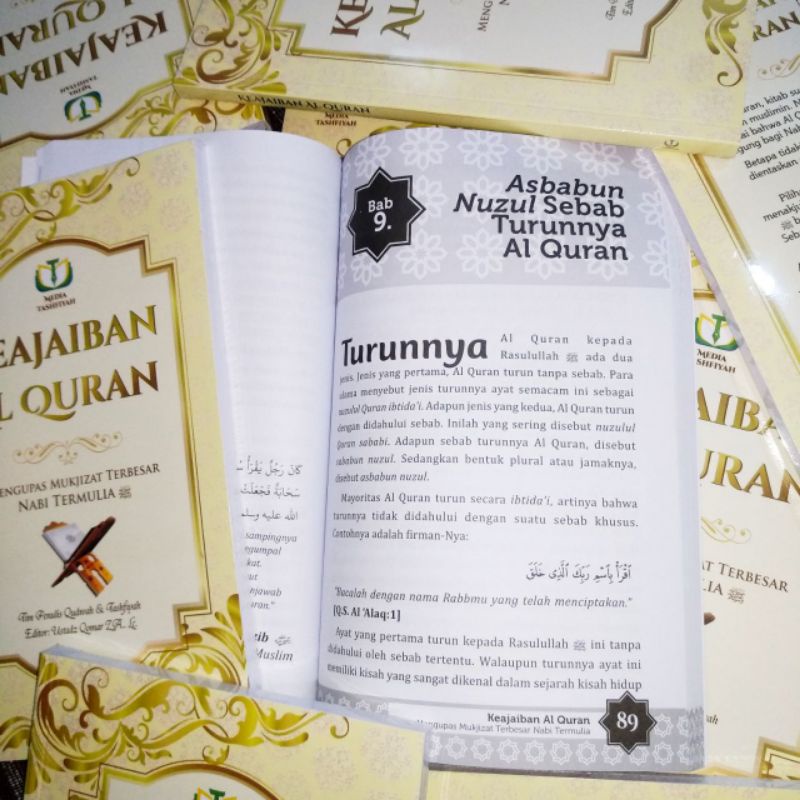 KEAJAIBAN
AL QURAN
MEDIA
TASHFIYAH
KEAJAIBAN AL QURAN
MEDIA
TASHFIYAH
MEDIA
TASHFIYAH
EAJAIBAN
L QURAN
MENGUPAS MUKJIZAT TERBESAR
NABI TERMULIA ﷺ
Tim Penulis Qudwah & Tashfiyah
Editor: Ustadz Qomar Z.A, Lc
كَانَ رَجُلٌ يَقْرَأُ
سَحَابَةٌ فَجَعَلَتْ
الله عليه وسلم
sampingnya
engumpal
kat.
but
enjawab
uran."
Muslim
Bab
9.
Asbabun
Nuzul Sebab
Turunnya
Al Quran
Turunnya Al Quran kepada
Rasulullah ﷺ ada dua
jenis. Jenis yang pertama, Al Quran turun tanpa sebab. Para
ulama menyebut jenis turunnya ayat semacam ini sebagai
nuzulul Quran ibtida'i. Adapun jenis yang kedua, Al Quran turun
dengan didahului sebab. Inilah yang sering disebut nuzulul
Quran sababi. Adapun sebab turunnya Al Quran, disebut
sababun nuzul. Sedangkan bentuk plural atau jamaknya,
disebut asbabun nuzul.
Mayoritas Al Quran turun secara ibtida'i, artinya bahwa
turunnya tidak didahului dengan suatu sebab khusus.
Contohnya adalah firman-Nya:
ٱقْرَأْ بِٱسْمِ رَبِّكَ ٱلَّذِى خَلَقَ
"Bacalah dengan nama Rabbmu yang telah menciptakan."
[Q.S. Al 'Alaq:1]
Ayat yang pertama turun kepada Rasulullah ﷺ ini tanpa
didahului oleh sebab tertentu. Walaupun turunnya ayat ini
memiliki kisah yang sangat dikenal dalam sejarah kisah hidup
Keajaiban Al Quran
Mengupas Mukjizat Terbesar Nabi Termulia
89
uran, kitab su
muslimin. N
ai bahwa Al Q
gung bagi Nab
Betapa tidak
dientaskan
Pilih
menakju
MEDIA
SHFIYAH
AIBA
URAN
T TERBESAR
MULIA ﷺ